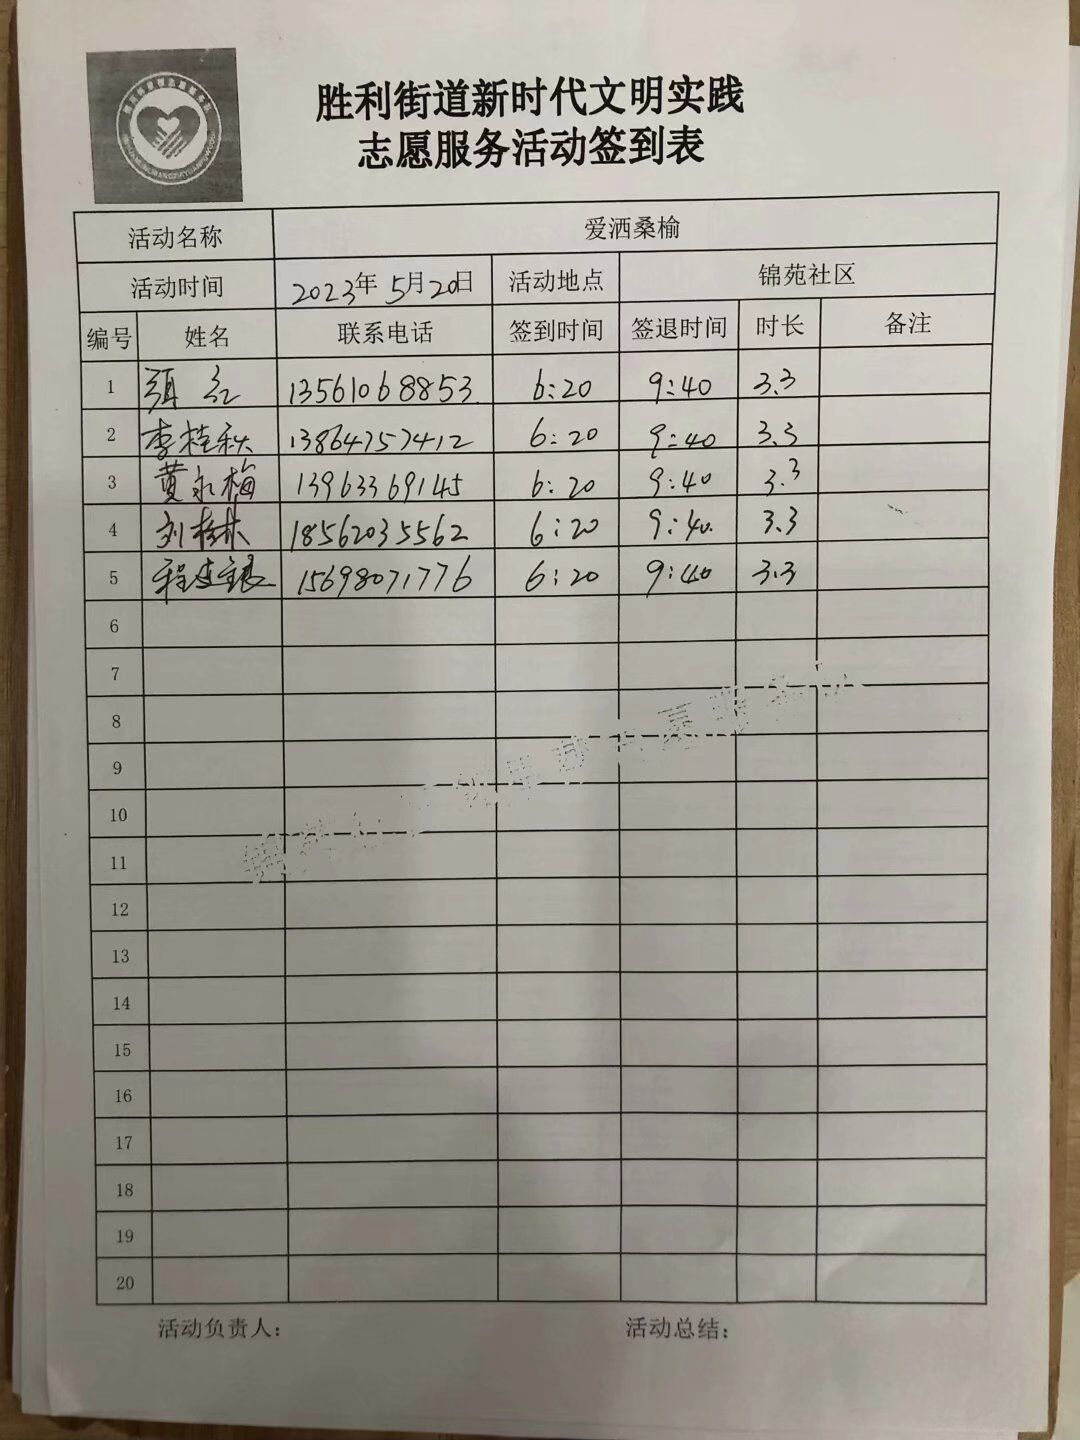 胜利街道新时代文明实践
志愿服务活动签到表
活动名称 爱洒桑榆
活动时间 2023年 5月20日 活动地点 锦苑社区
编号 姓名 联系电话 签到时间 签退时间 时长 备注
1 红 13561068853 6:20 9:40 3.3
2 李桂秋 13864757412 6:20 9:40 3.3
3 黄永梅 13963369145 6:20 9:40 3.3
4 刘桂林 18562035562 6:20 9:40 3.3
5 程 15698071776 6:20 9:40 3.3
6
7
8
9
10
11
12
13
14
15
16
17
18
19
20
活动负责人: 活动总结: